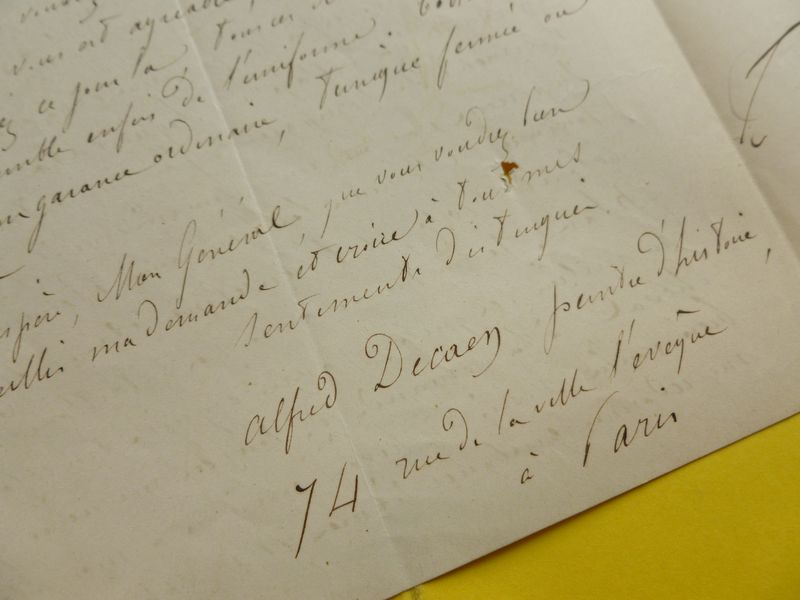 vous est agréable,
ce jour là, tous ces
semble enfin de l'uniforme.
garance ordinaire, tunique fermée ou
Mon Général, que vous voudrez bien
ma demande et croire à tous mes
sentiments distingués.
Alfred Decaen peintre d'histoire,
74 rue de la ville l'eveque
à Paris